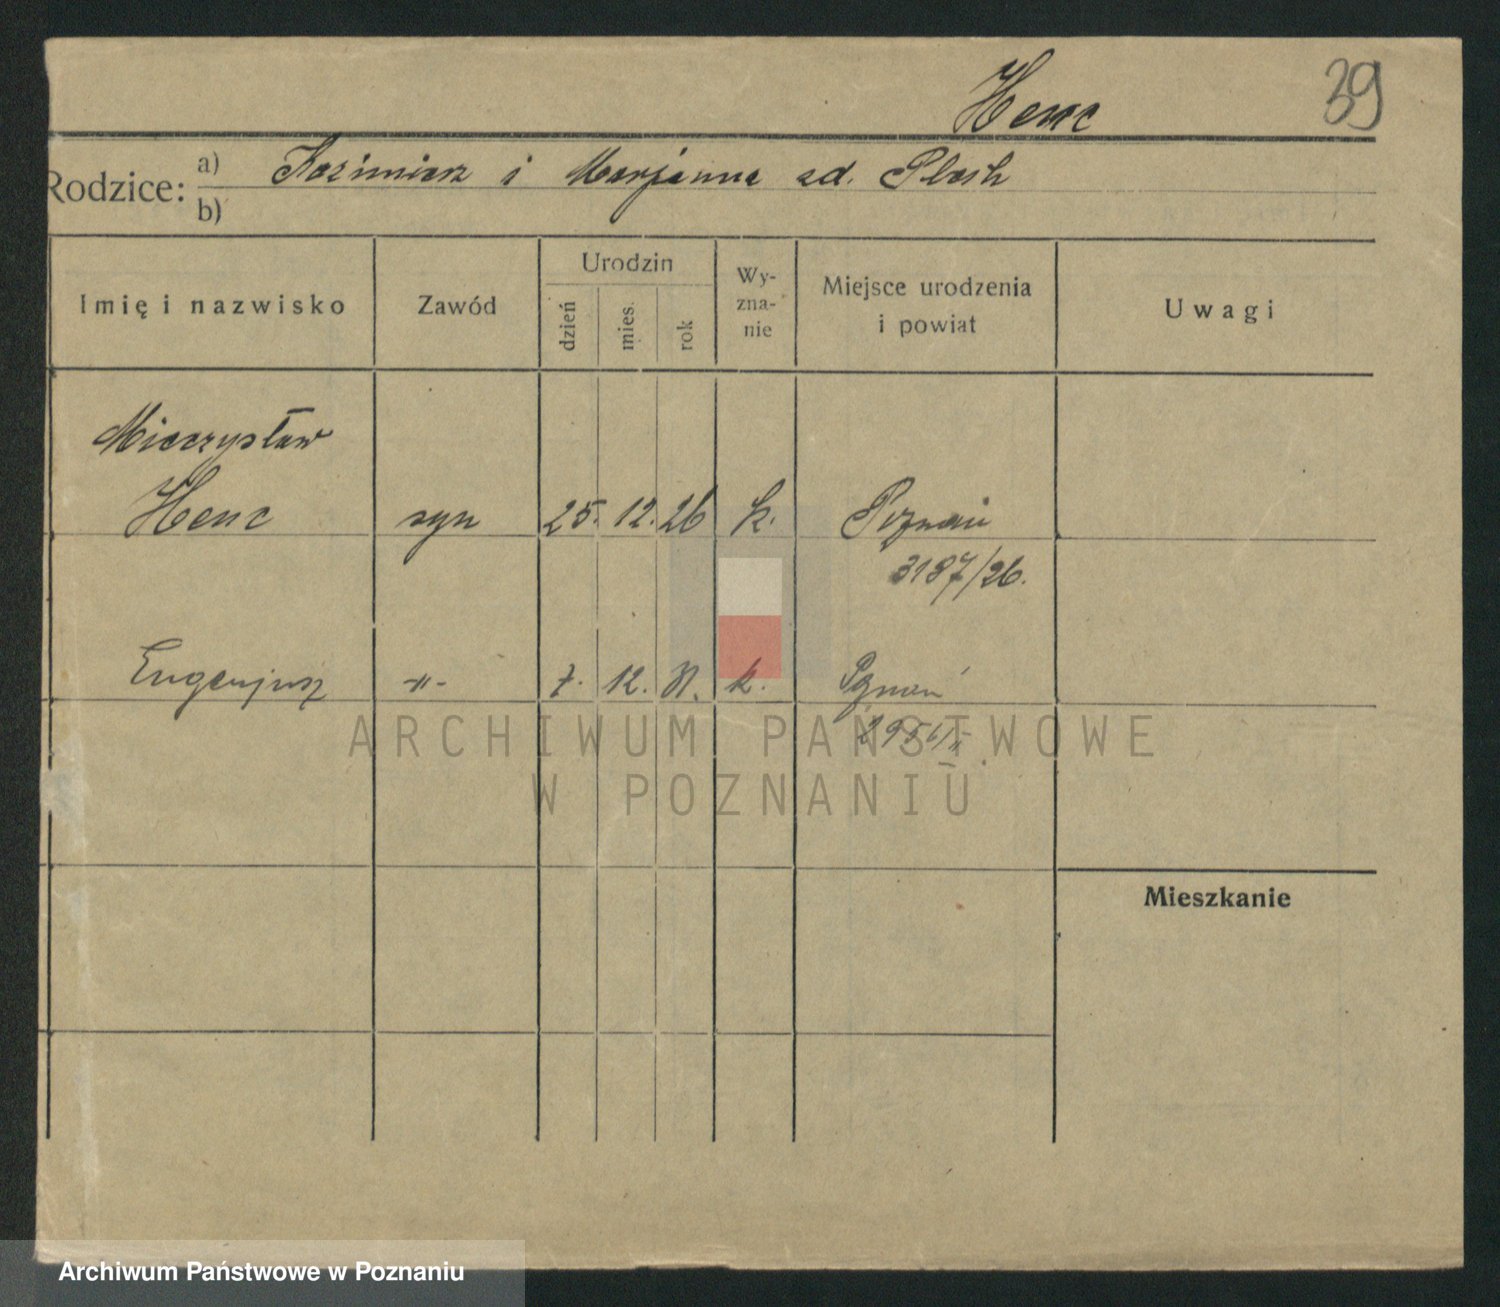 Henc
39
Rodzice: a) Kazimierz i Marjanna zd. Ploch
b)
Imię i nazwisko Zawód Urodzin dzień mies. rok Wy-zna-nie Miejsce urodzenia i powiat Uwagi
Mieczysław
Henc syn 25. 12. 26 k. Poznań
3187/26.
Eugenjusz -"- 7. 12. k. Poznań
ARCHIWUM PAŃSTWOWE
W POZNANIU
Mieszkanie
Archiwum Państwowe w Poznaniu